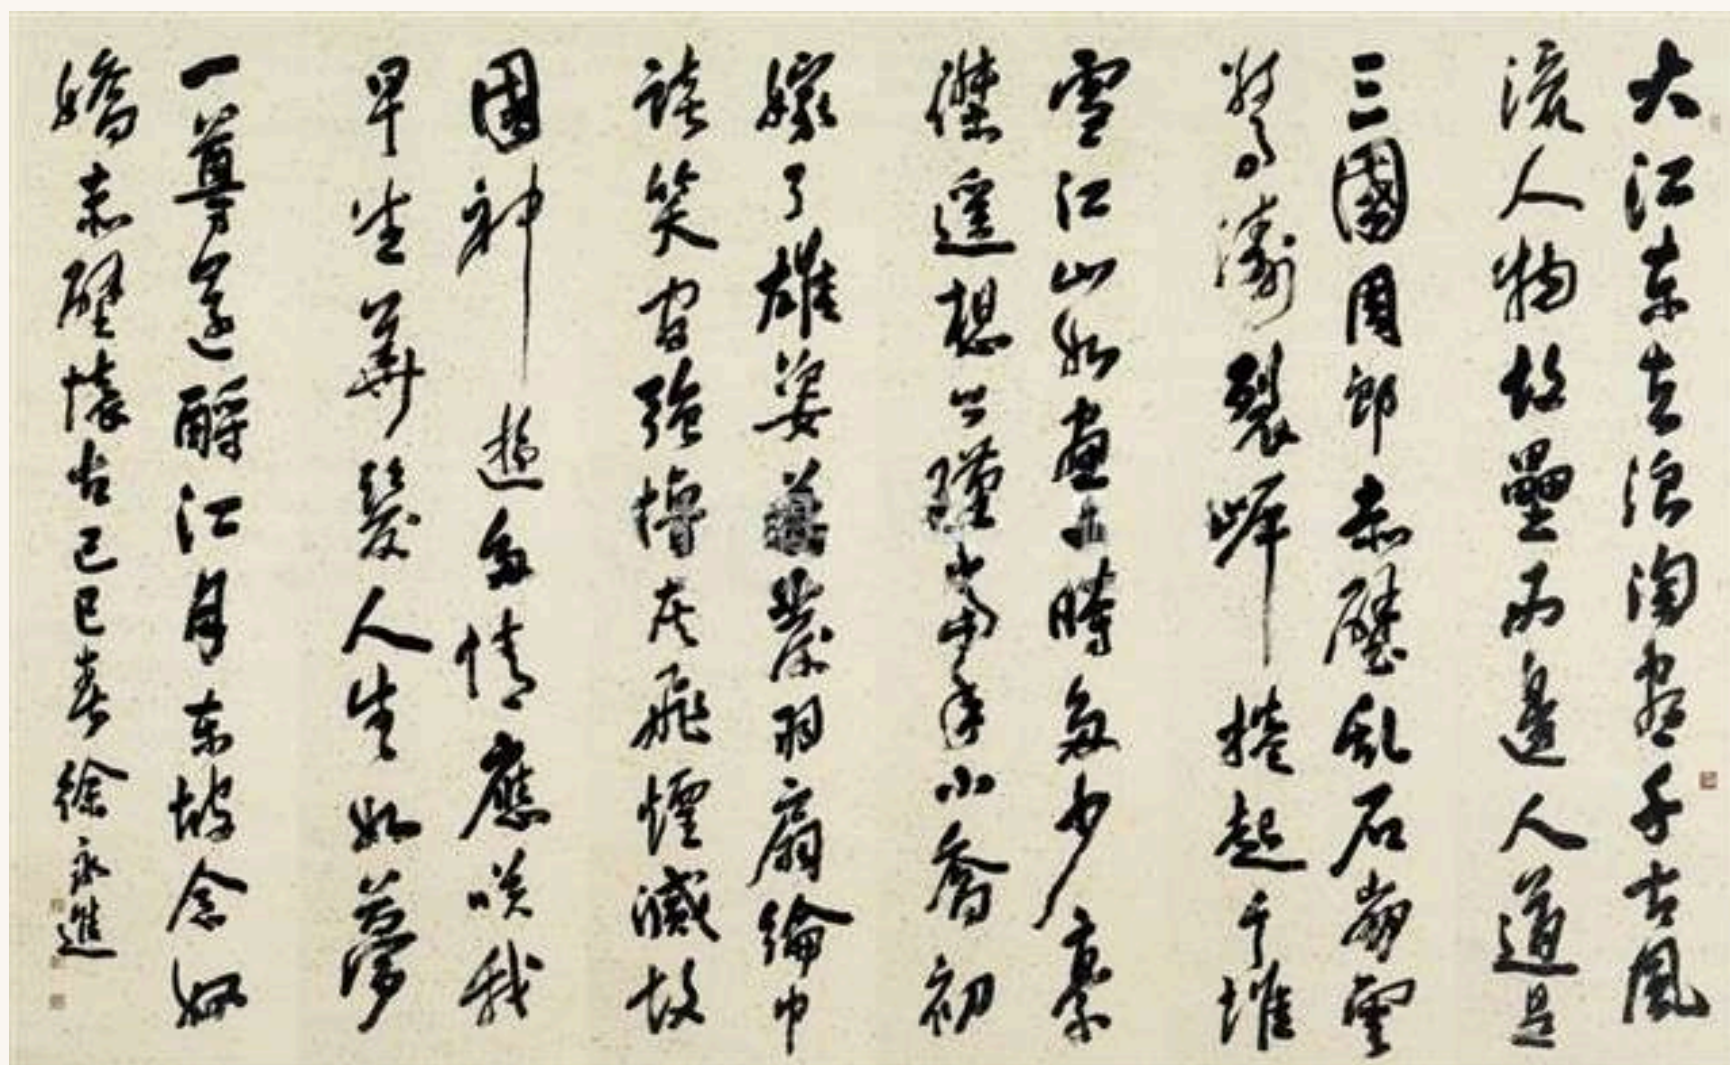 大江东去浪淘盡千古風
流人物故壘西邊人道是
三國周郎赤壁乱石崩雲
驚濤裂岸捲起千堆
雪江山如畫一時多少豪
傑遥想公瑾當年小喬初
嫁了雄姿英發羽扇綸巾
談笑间強灰飛煙滅故
國神遊多情應咲我
早生華髮人生如夢
一尊還酹江月东坡念奴
嬌赤壁懷古己巳春徐永進